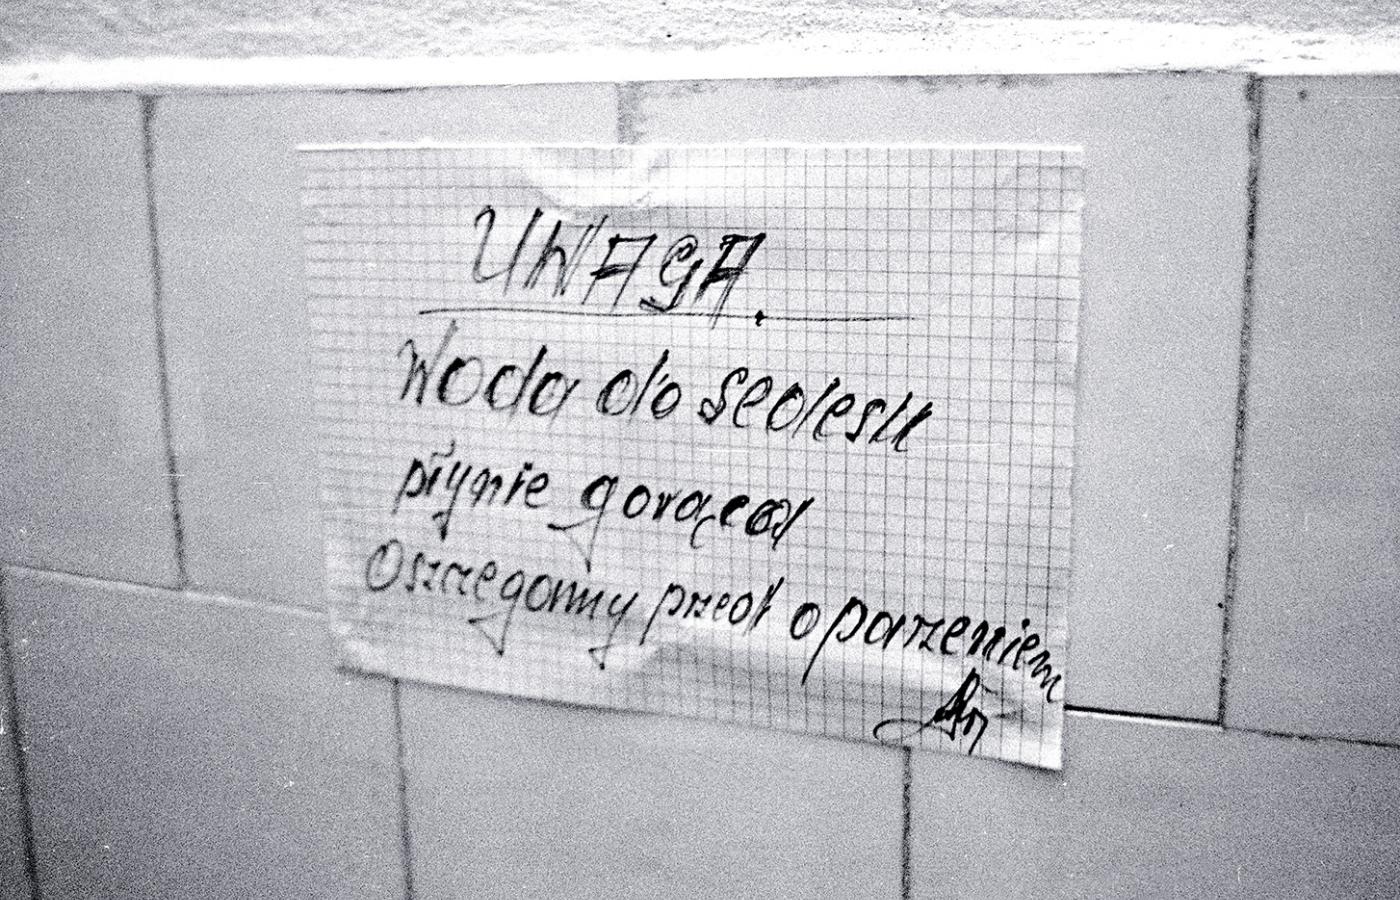 UWAGA.
Woda do sedesu
płynie gorąca
Oszczegamy przed oparzeniem